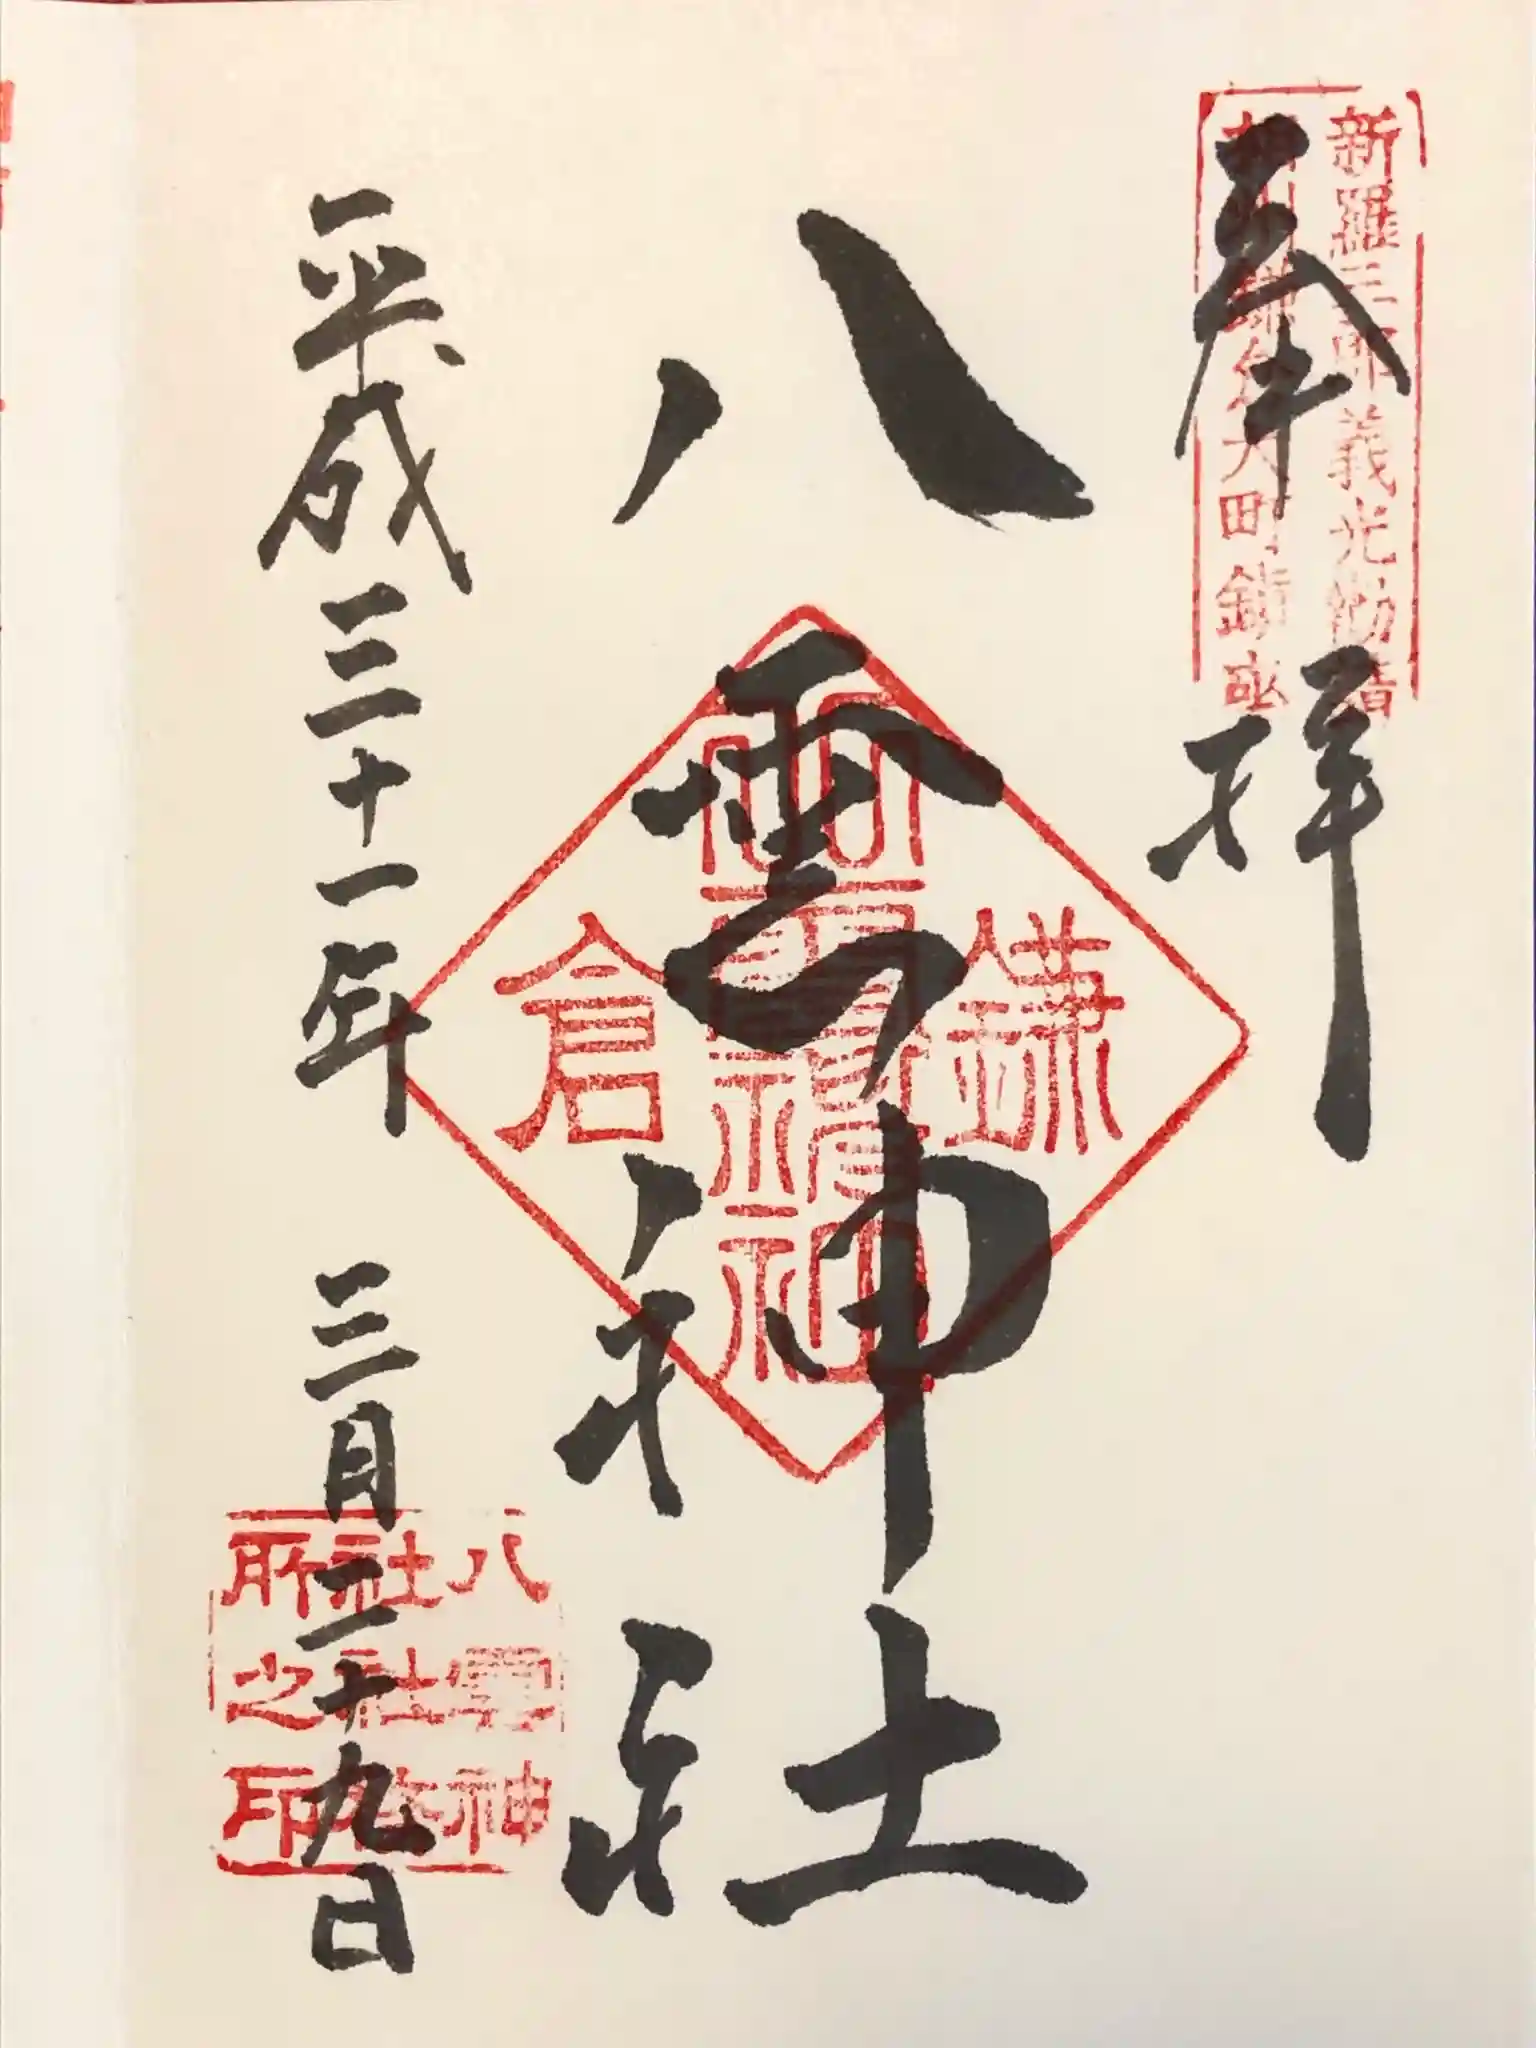 新羅三郎義光勧請
相州鎌倉大町鎮座
奉拝
八雲神社
鎌倉
平成三十一年 三月二十九日
八雲神
社社務
所之印